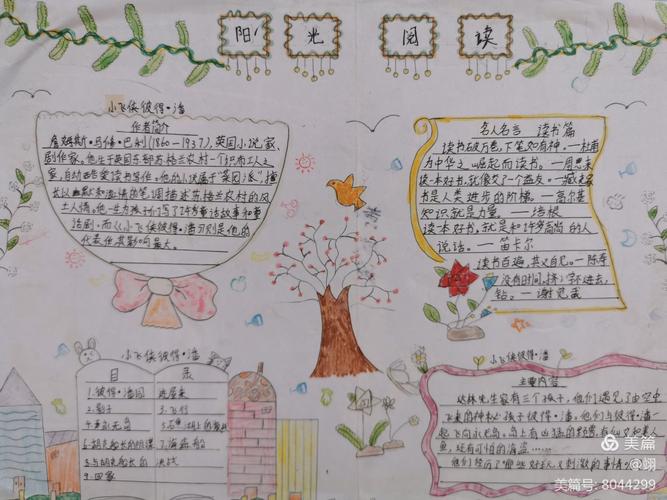 阳光阅读
小飞侠彼得·潘
作者简介
詹姆斯·马修·巴利(1860-1937),英国小说家、
剧作家。他生于英国东部苏格兰农村一个织布工人之
家,自幼酷爱读书写作。他的小说属于“菜园派”,擅
长以幽默和温情的笔调描述苏格兰农村的风
土人情。他一生为孩子们写了许多童话故事和童
话剧。而《小飞侠彼得·潘》则是他的
代表作,其影响最大。
名人名言 读书篇
读书破万卷,下笔如有神。—杜甫
为中华之崛起而读书。—周恩来
读一本好书,就像交了一个益友。—臧克家
书是人类进步的阶梯。—高尔基
知识就是力量。—培根
读一本好书,就是和许多高尚的人
说话。—笛卡尔
读书百遍,其义自见。—陈寿
没有时间,挤;学不进去,
钻。—谢觉哉
小飞侠彼得·潘
目录
1.彼得·潘闯进屋来
2.影子 3.飞行
4.永无岛
6.胡克船长的 7.海盗船
8.与胡克船长的决战
9.回家
小飞侠彼得·潘
主要内容
达林先生家有三个孩子,他们遇见了由空中
飞来的神秘孩子彼得·潘,他们与彼得·潘一
起飞向永无岛。岛上有凶猛的野兽,
鱼,还有可怕的海盗……
他们经历了哪些好玩又刺激的事情
美篇
@翊
美篇号: 8044299